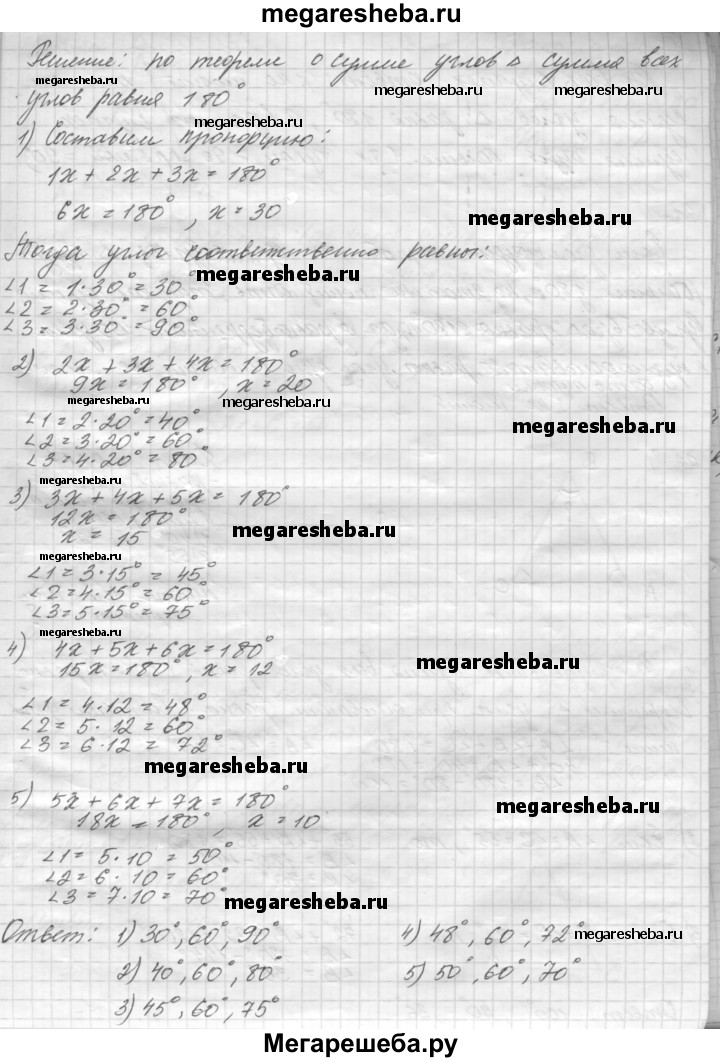 megaresheba.ru
Решение: по теореме о сумме углов △ сумма всех
megaresheba.ru
megaresheba.ru
megaresheba.ru
углов равна 180°
megaresheba.ru
1) Составим пропорцию:
1x + 2x + 3x = 180°
6x = 180°, x = 30
megaresheba.ru
Тогда углы соответственно равны:
megaresheba.ru
∠1 = 1·30° = 30°
∠2 = 2·30° = 60°
∠3 = 3·30° = 90°
2) 2x + 3x + 4x = 180°
9x = 180°, x = 20
megaresheba.ru
megaresheba.ru
∠1 = 2·20° = 40°
megaresheba.ru
∠2 = 3·20° = 60°
∠3 = 4·20° = 80°
megaresheba.ru
3) 3x + 4x + 5x = 180°
12x = 180°
megaresheba.ru
x = 15
megaresheba.ru
∠1 = 3·15° = 45°
∠2 = 4·15° = 60°
∠3 = 5·15° = 75°
megaresheba.ru
4) 4x + 5x + 6x = 180°
15x = 180°, x = 12
megaresheba.ru
∠1 = 4·12 = 48°
∠2 = 5·12 = 60°
∠3 = 6·12 = 72°
megaresheba.ru
5) 5x + 6x + 7x = 180°
megaresheba.ru
18x = 180°, x = 10
∠1 = 5·10 = 50°
∠2 = 6·10 = 60°
∠3 = 7·10 = 70°
megaresheba.ru
Ответ: 1) 30°, 60°, 90° 4) 48°, 60°, 72°
megaresheba.ru
2) 40°, 60°, 80° 5) 50°, 60°, 70°
3) 45°, 60°, 75°
Мегарешеба.ру